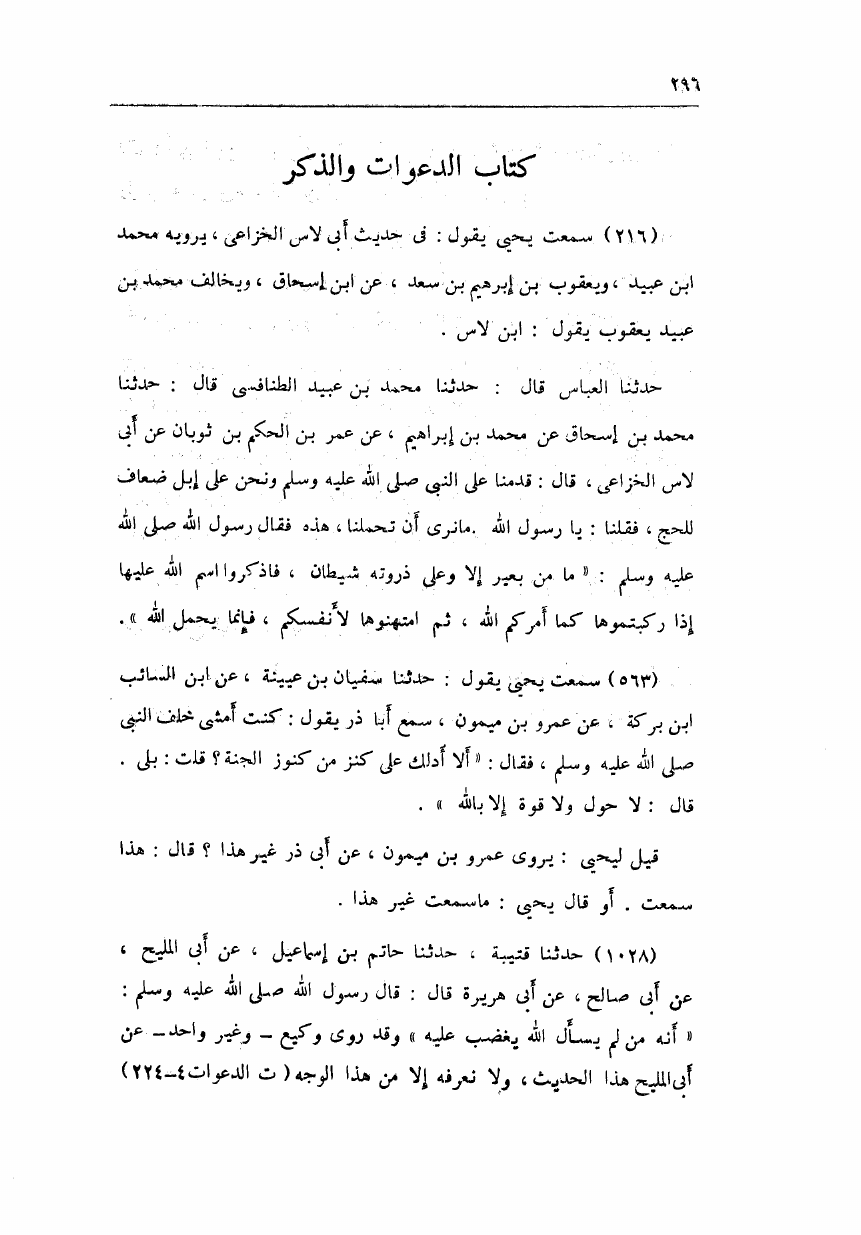 ٢٩٦
كتاب الدعوات والذكر
(٢١٦) سمعت يحيى يقول : فى حديث أبى لاس الخزاعى ، يرويه محمد
ابن عبيد ، ويعقوب بن إبرهيم بن سعد ، عن ابن إسحاق ، ويخالف محمد بن
عبيد يعقوب يقول : ابن لاس .
حدثنا العباس قال : حدثنا محمد بن عبيد الطنافسى قال : حدثنا
محمد بن إسحاق عن محمد بن إبراهيم ، عن عمر بن الحكم بن ثوبان عن أبى
لاس الخزاعى ، قال : قدمنا على النبى صلى الله عليه وسلم ونحن على إبل ضعاف
للحج ، فقلنا : يا رسول الله .مانرى أن تحملنا ، هذه فقال رسول الله صلى الله
عليه وسلم : « ما من بعير إلا وعلى ذروته شيطان ، فاذكروا اسم الله عليها
إذا ركبتموها كما أمركم الله ، ثم امتهنوها لأنفسكم ، فإنما يحمل الله » .
(٥٦٣) سمعت يحيى يقول : حدثنا سفيان بن عيينة ، عن ابن السائب
ابن بركة ، عن عمرو بن ميمون ، سمع أبا ذر يقول : كنت أمشى خلف النبى
صلى الله عليه وسلم ، فقال : « ألا أدلك على كنز من كنوز الجنة ؟ قلت : بلى .
قال : لا حول ولا قوة إلا بالله » .
قيل ليحيى : يروى عمرو بن ميمون ، عن أبى ذر غير هذا ؟ قال : هذا
سمعت . أو قال يحيى : ماسمعت غير هذا .
(١٠٢٨) حدثنا قتيبة ، حدثنا حاتم بن إسماعيل ، عن أبى المليح ،
عن أبى صالح ، عن أبى هريرة قال : قال رسول الله صلى الله عليه وسلم :
« أنه من لم يسأل الله يغضب عليه » وقد روى وكيع – وغير واحد – عن
أبى المليح هذا الحديث ، ولا نعرفه إلا من هذا الوجه ( ت الدعوات ٤–٢٢٤ )